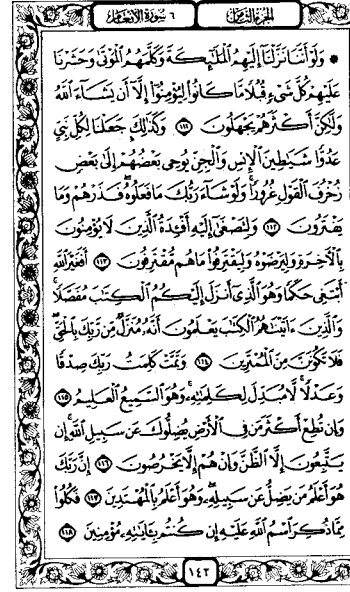 الجزء الثامن ٦ سورة الأنعام
۞ وَلَوْ أَنَّنَا نَزَّلْنَا إِلَيْهِمُ الْمَلَٰٓئِكَةَ وَكَلَّمَهُمُ الْمَوْتَىٰ وَحَشَرْنَا
عَلَيْهِمْ كُلَّ شَىْءٍ قُبُلًا مَّا كَانُوا لِيُؤْمِنُوٓا إِلَّآ أَن يَشَآءَ اللَّهُ
وَلَٰكِنَّ أَكْثَرَهُمْ يَجْهَلُونَ ١١١ وَكَذَٰلِكَ جَعَلْنَا لِكُلِّ نَبِىٍّ
عَدُوًّا شَيَٰطِينَ الْإِنسِ وَالْجِنِّ يُوحِى بَعْضُهُمْ إِلَىٰ بَعْضٍ
زُخْرُفَ الْقَوْلِ غُرُورًا وَلَوْ شَآءَ رَبُّكَ مَا فَعَلُوهُ فَذَرْهُمْ وَمَا
يَفْتَرُونَ ١١٢ وَلِتَصْغَىٰٓ إِلَيْهِ أَفْـِٔدَةُ الَّذِينَ لَا يُؤْمِنُونَ
بِالْأٓخِرَةِ وَلِيَرْضَوْهُ وَلِيَقْتَرِفُوا مَا هُم مُّقْتَرِفُونَ ١١٣ أَفَغَيْرَ اللَّهِ
أَبْتَغِى حَكَمًا وَهُوَ الَّذِىٓ أَنزَلَ إِلَيْكُمُ الْكِتَٰبَ مُفَصَّلًا
وَالَّذِينَ ءَاتَيْنَٰهُمُ الْكِتَٰبَ يَعْلَمُونَ أَنَّهُۥ مُنَزَّلٌ مِّن رَّبِّكَ بِالْحَقِّ
فَلَا تَكُونَنَّ مِنَ الْمُمْتَرِينَ ١١٤ وَتَمَّتْ كَلِمَتُ رَبِّكَ صِدْقًا
وَعَدْلًا لَّا مُبَدِّلَ لِكَلِمَٰتِهِۦ وَهُوَ السَّمِيعُ الْعَلِيمُ ١١٥
وَإِن تُطِعْ أَكْثَرَ مَن فِى الْأَرْضِ يُضِلُّوكَ عَن سَبِيلِ اللَّهِ إِن
يَتَّبِعُونَ إِلَّا الظَّنَّ وَإِنْ هُمْ إِلَّا يَخْرُصُونَ ١١٦ إِنَّ رَبَّكَ
هُوَ أَعْلَمُ مَن يَضِلُّ عَن سَبِيلِهِۦ وَهُوَ أَعْلَمُ بِالْمُهْتَدِينَ ١١٧ فَكُلُوا
مِمَّا ذُكِرَ اسْمُ اللَّهِ عَلَيْهِ إِن كُنتُم بِـَٔايَٰتِهِۦ مُؤْمِنِينَ ١١٨
١٤٢